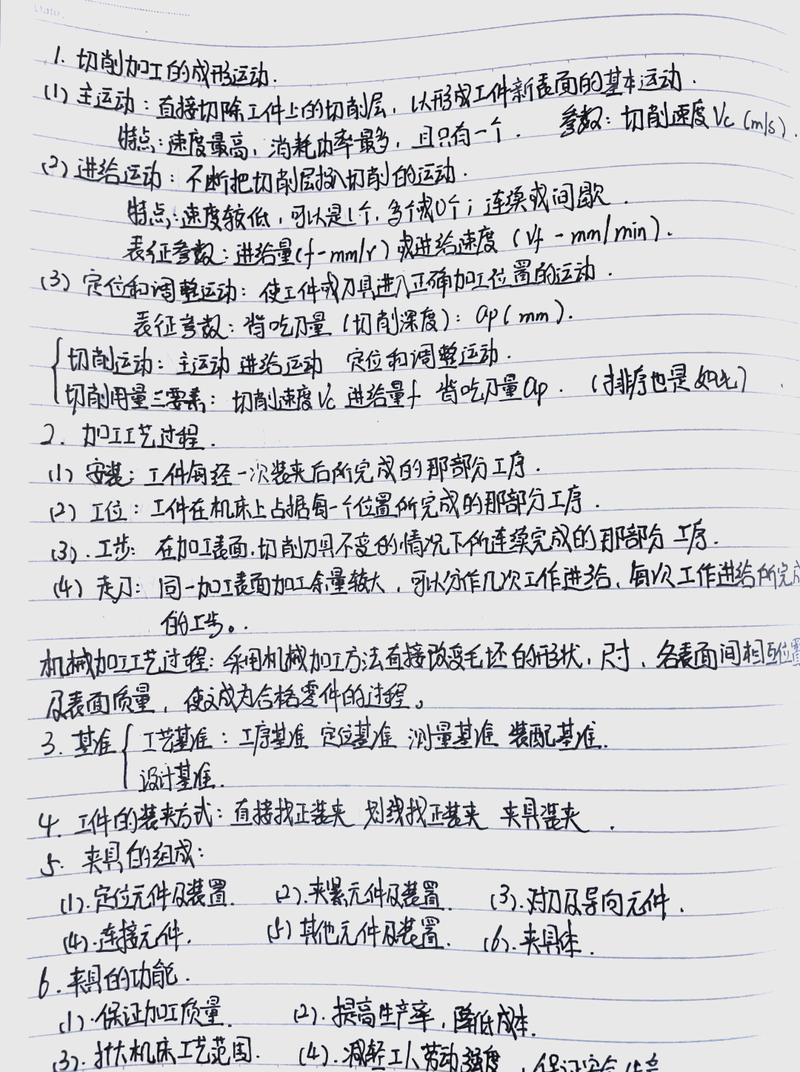 1. 切削加工的成形运动.
(1) 主运动: 直接切除工件上的切削层, 以形成工件新表面的基本运动.
特点: 速度最高, 消耗功率最多, 且只有一个. 参数: 切削速度Vc (m/s).
(2) 进给运动: 不断把切削层投入切削的运动.
特点: 速度较低, 可以是1个, 多个或0个; 连续或间歇.
表征参数: 进给量(f-mm/r) 或进给速度 (Vf - mm/min).
(3) 定位和调整运动: 使工件或刀具进入正确加工位置的运动.
表征参数: 背吃刀量 (切削深度): ap(mm).
切削运动: 主运动 进给运动 定位和调整运动.
切削用量三要素: 切削速度Vc 进给量f 背吃刀量ap. (排序也是如此)
2. 加工工艺过程.
(1) 安装: 工件每经一次装夹后所完成的那部分工序.
(2) 工位: 工件在机床上占据每一个位置所完成的那部分工序.
(3). 工步: 在加工表面, 切削刀具不变的情况下所连续完成的那部分工序.
(4) 走刀: 同一加工表面加工余量较大, 可以分作几次工作进给, 每次工作进给所完成
的工步。.
机械加工工艺过程: 采用机械加工方法直接改变毛坯的形状, 尺寸, 各表面间相互位置
及表面质量, 使之成为合格零件的过程。
3. 基准 { 工艺基准: 工序基准 定位基准 测量基准 装配基准.
设计基准.
4. 工件的装夹方式: 直接找正装夹 划线找正装夹 夹具装夹.
5. 夹具的组成:
(1). 定位元件及装置. (2). 夹紧元件及装置. (3). 对刀及导向元件.
(4). 连接元件. (5) 其他元件及装置. (6). 夹具体.
6. 夹具的功能.
(1). 保证加工质量. (2). 提高生产率, 降低成本.
(3). 扩大机床工艺范围. (4). 减轻工人劳动强度, 保证安全